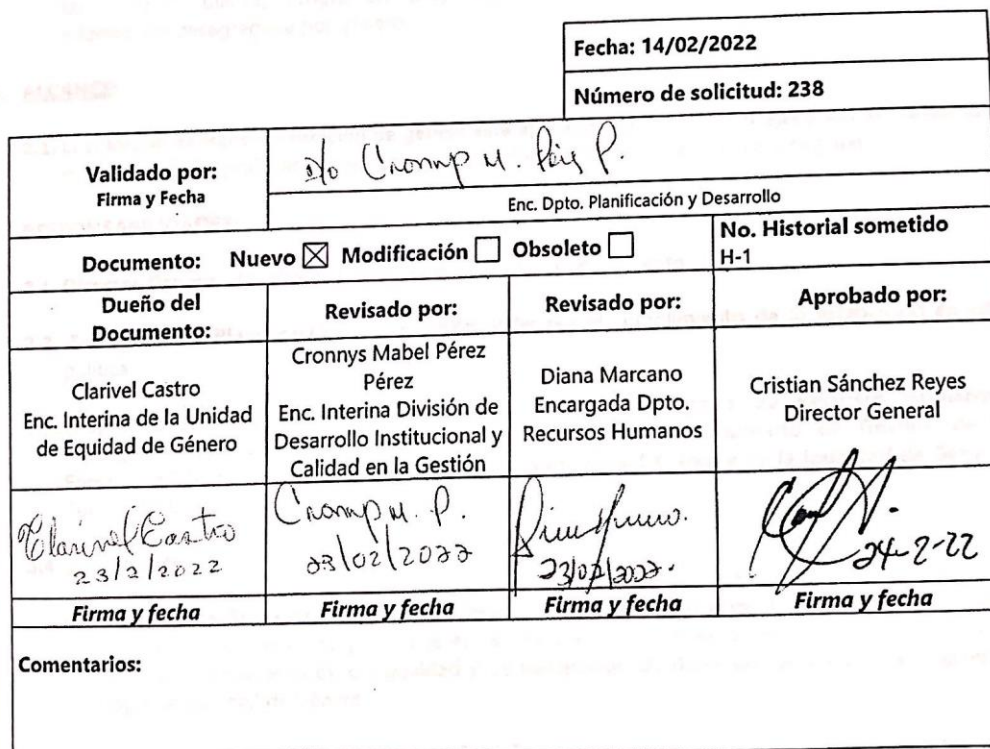 Fecha: 14/02/2022
Número de solicitud: 238
Validado por:
Firma y Fecha
P/o Cronnys M. Pérez P.
Enc. Dpto. Planificación y Desarrollo
Documento: Nuevo ☒ Modificación ☐ Obsoleto ☐
No. Historial sometido
H-1
Dueño del
Documento:
Revisado por:
Revisado por:
Aprobado por:
Clarivel Castro
Enc. Interina de la Unidad
de Equidad de Género
Cronnys Mabel Pérez
Pérez
Enc. Interina División de
Desarrollo Institucional y
Calidad en la Gestión
Diana Marcano
Encargada Dpto.
Recursos Humanos
Cristian Sánchez Reyes
Director General
Clarivel Castro
23/2/2022
Cronnys M. P.
23/02/2022
23/02/2022.
24-2-22
Firma y fecha
Firma y fecha
Firma y fecha
Firma y fecha
Comentarios: